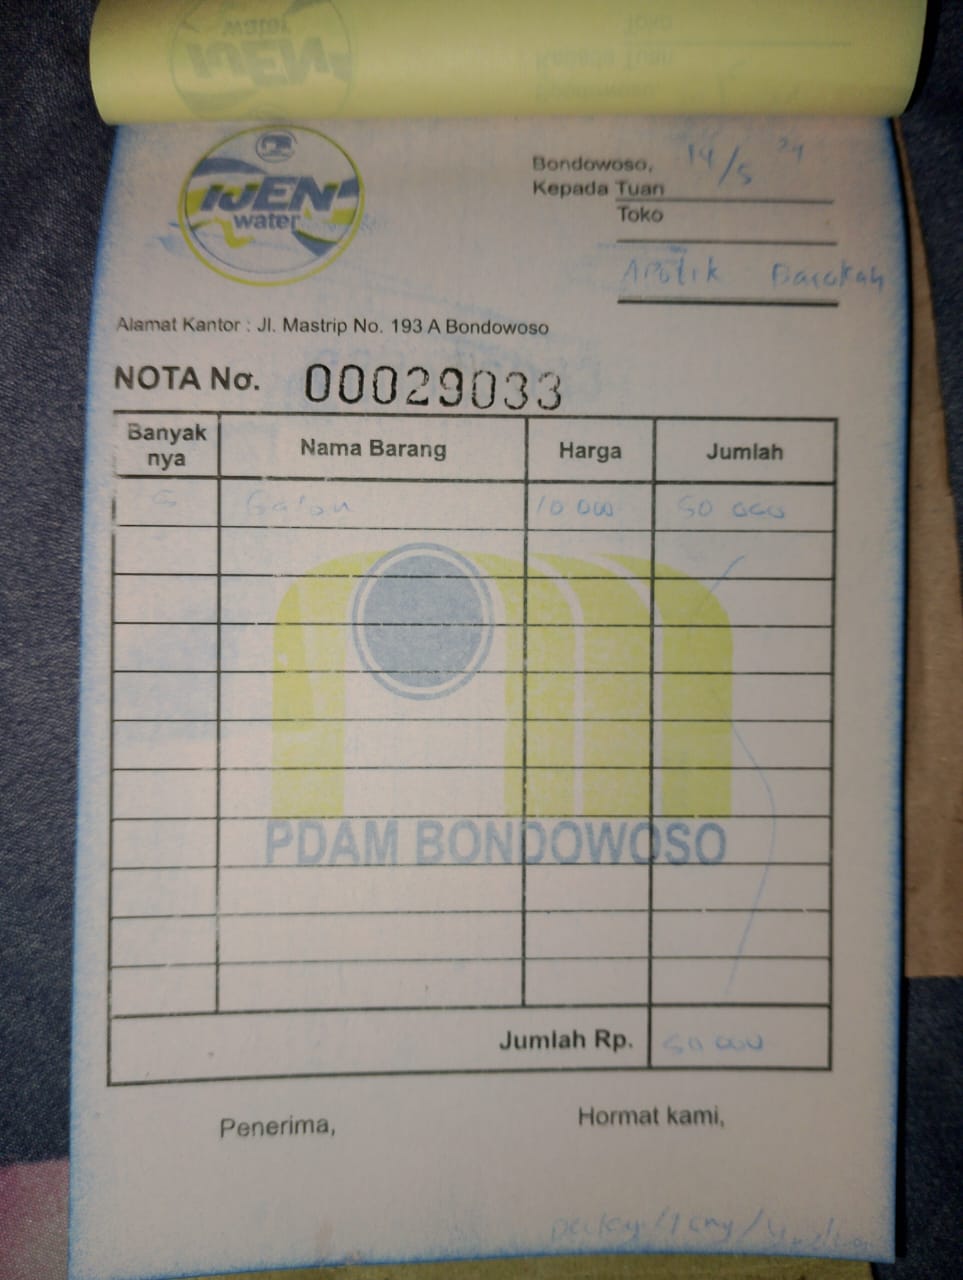 IJEN
water
Bondowoso, 14/5 24
Kepada Tuan
Toko
Apotik Barokah
Alamat Kantor : Jl. Mastrip No. 193 A Bondowoso
NOTA No. 00029033
Banyak nya Nama Barang Harga Jumlah
5 Galon 10 000 50 000
PDAM BONDOWOSO
Jumlah Rp. 50 000
Penerima, Hormat kami,